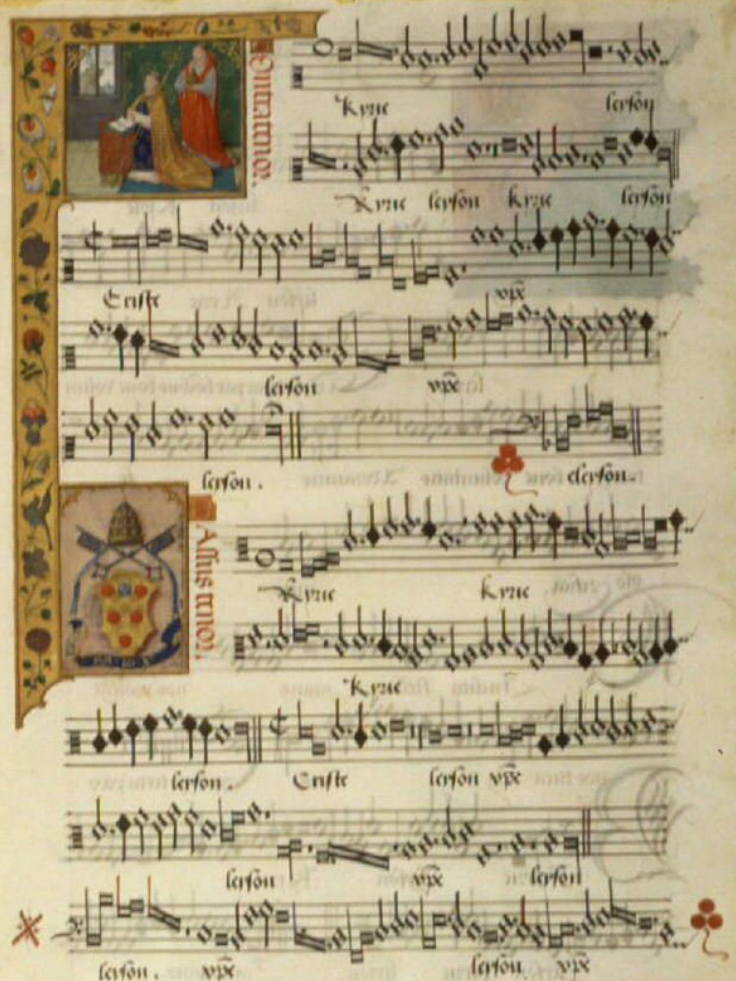 Contratenor.
Kyrie leyson
Kyrie leyson kyrie leyson
Criste xpe
leyson xpe
leyson. eleyson.
Altus tenor.
Kyrie kyrie
Kyrie
leyson. Criste leyson xpe
leyson xpe leyson
leyson. xpe leyson xpe